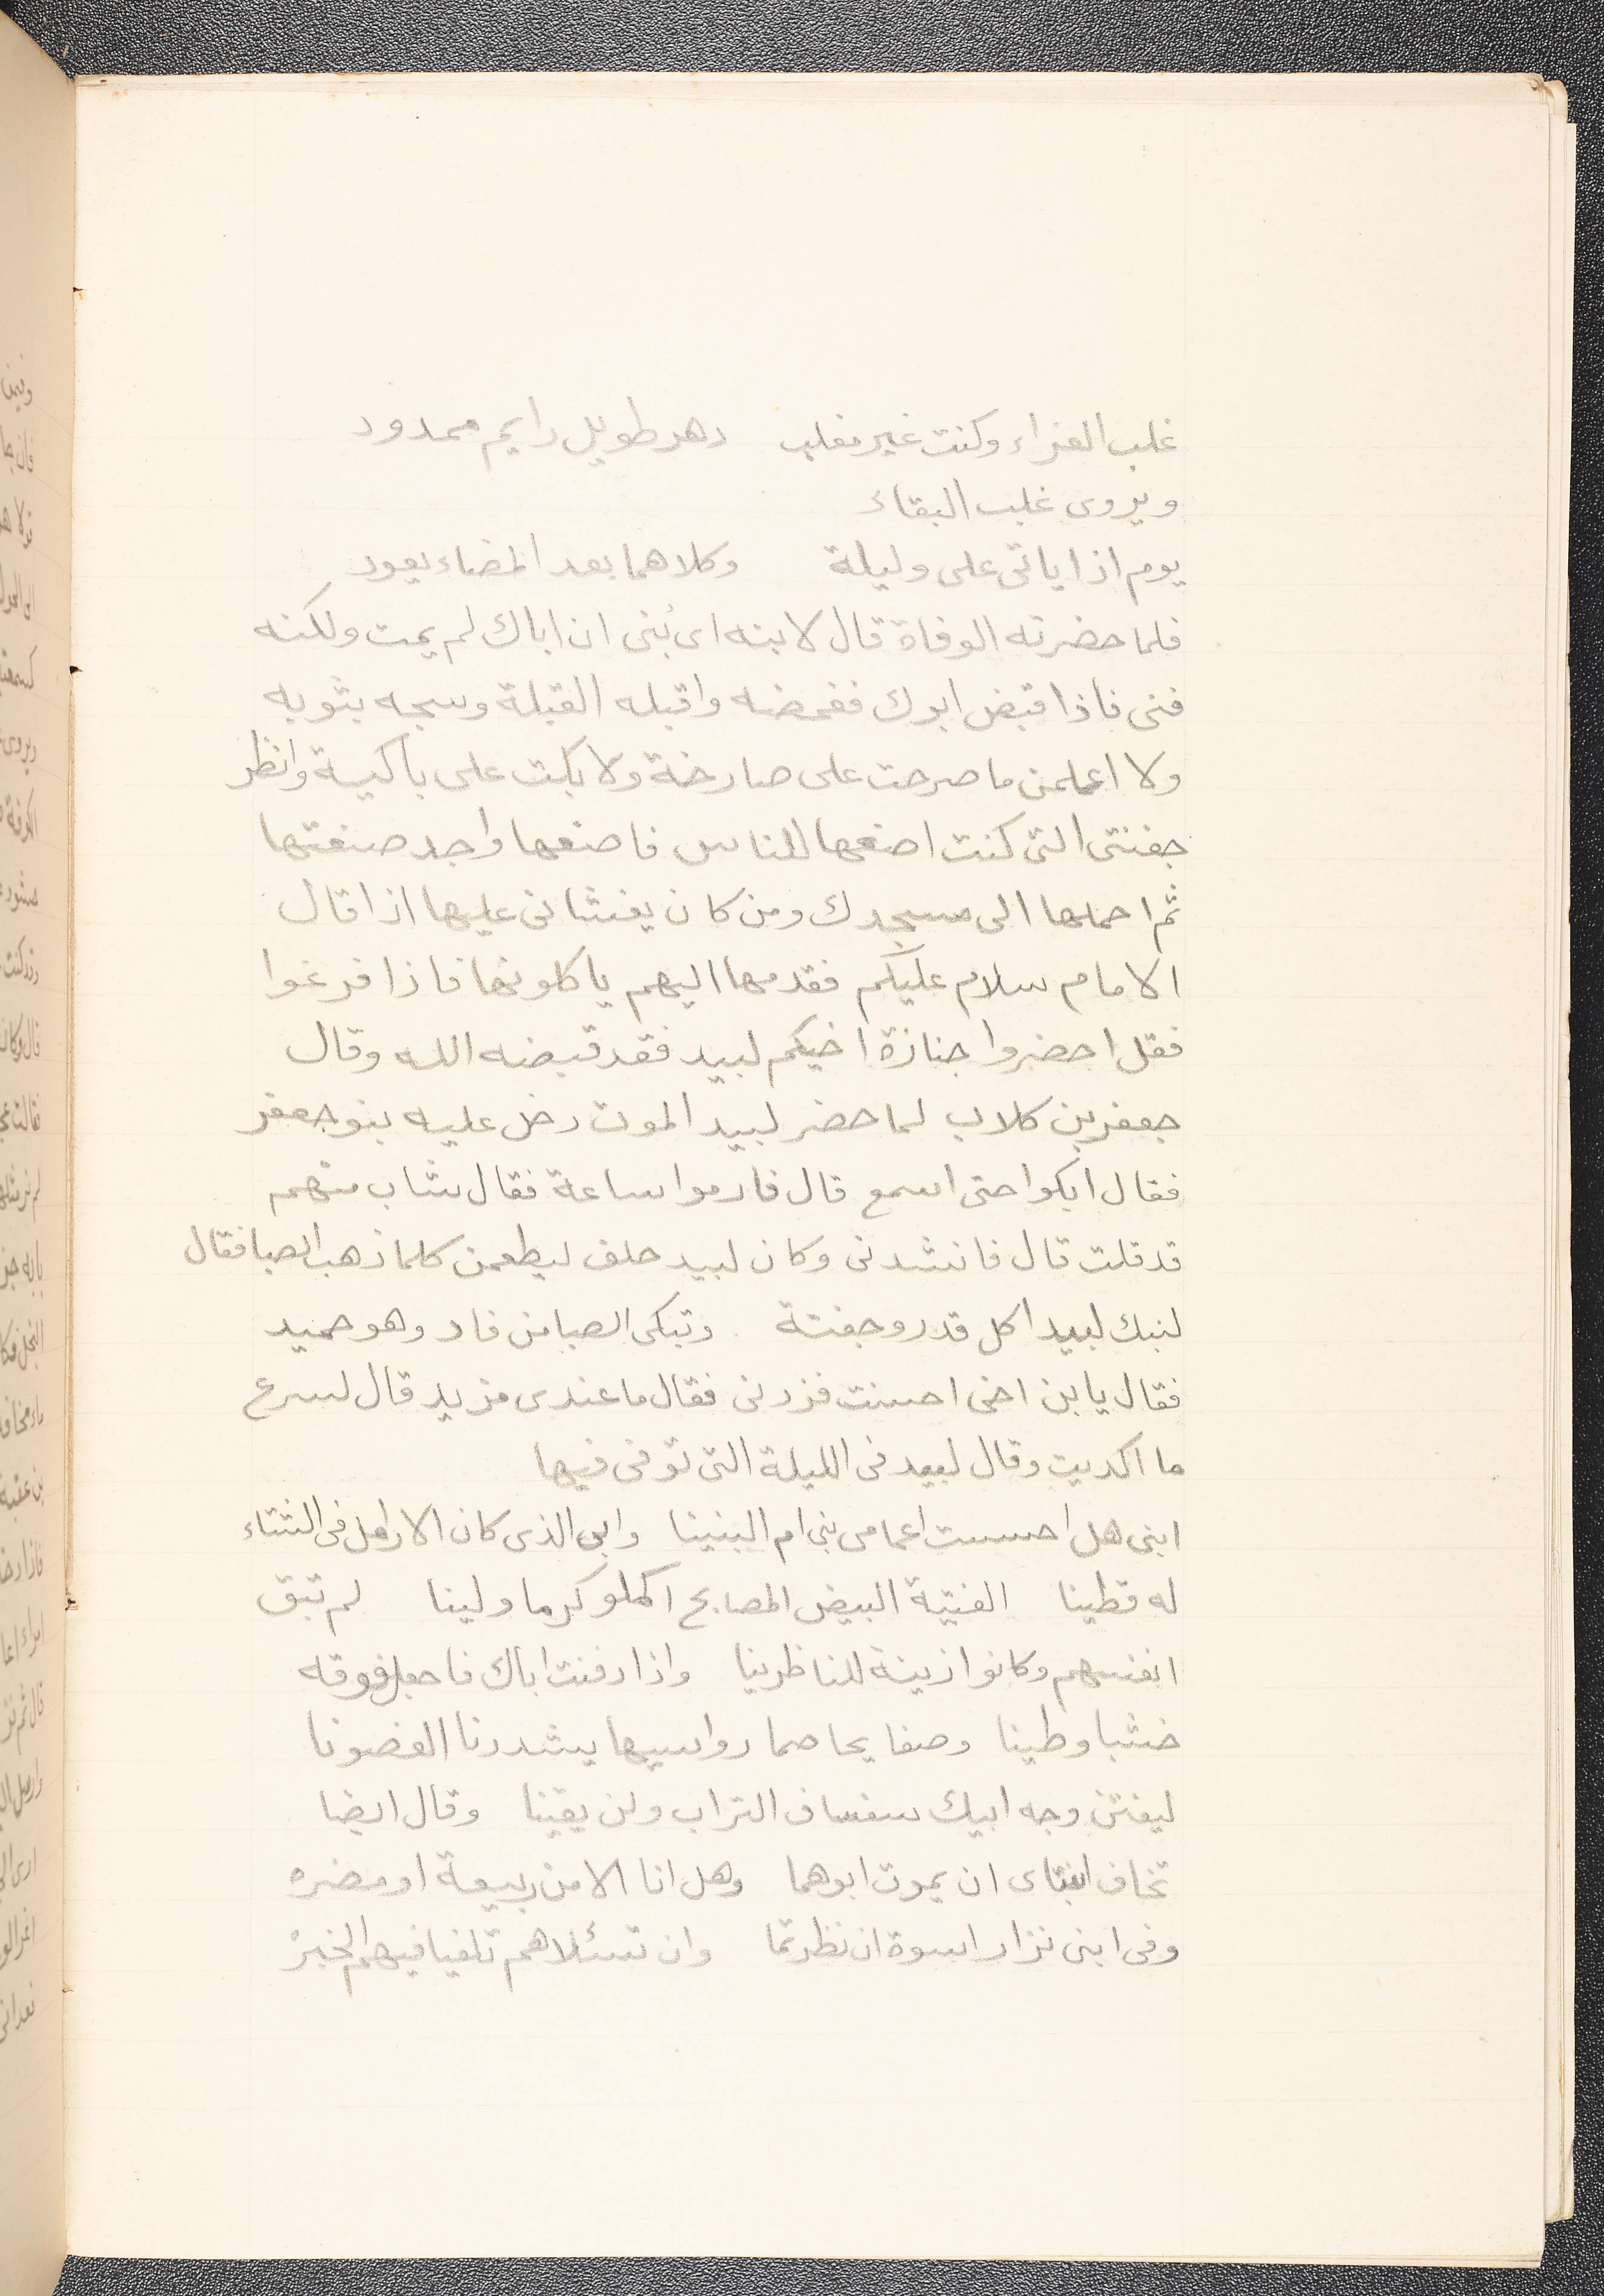 غلب العزاء وكنت غير مغلب دهر طويل دايم ممدود
ويروى غلب البقاء
يوم اذا ياتى على وليلة وكلاهما بعد المضاء يعود
فلما حضرته الوفاة قال لابنه اى بُنى ان اباك لم يمت ولكنه
فنى فاذا قبض ابوك فغمضه واقبله القبلة وسجه بثوبه
ولا اعلمن ما صرحت على صارخة ولا بكت على باكية وانظر
جفنتى التى كنت اصنعها للناس فاصنعها واجد صنعتها
ثم احملها الى مسجدك ومن كان يغشانى عليها اذا قال
الامام سلام عليكم فقدمها اليهم ياكلونها فاذا فرغوا
فقل احضروا جنازة اخيكم لبيد فقد قبضه الله وقال
جعفر بن كلاب لما حضر لبيد الموت دخل عليه بنو جعفر
فقال ابكوا حتى اسمع قال فارموا ساعة فقال شاب منهم
قد قلت قال فانشدنى وكان لبيد حلف ليطعمن كلما ذهب الصبا فقال
لنبك لبيدا كل قدر وجفنة وتبكى الصبا من فاد وهو حميد
فقال يابن اخى احسنت فزدنى فقال ما عندى مزيد قال لسرع
ما اكديت وقال لبيد فى الليلة التى توفى فيها
ابنى هل احسست اعمامى بنى ام البنينا وابى الذى كان الارامل فى الشتاء
له قطينا الفتية البيض المصابح اكملو كرما ولينا لم تبق
انفسهم وكانوا زينة للناظرينا واذا دفنت اباك فاجعل فوقه
خشبا وطينا وصفايحا صما رواسيها يشددنا الغضونا
ليفتن وجه ابيك سفساف التراب ولن يقينا وقال ايضا
تخاف ابنتاى ان يموت ابوهما وهل انا الا من ربيعة او مضره
وفى ابنى نزار اسوة ان نظرتما وان تسئلاهم تلفيا فيهم الخبرْ